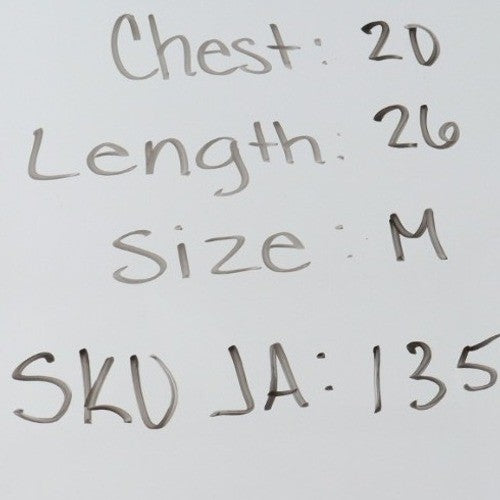 Chest: 20
Length: 26
Size: M
SKU JA: 135